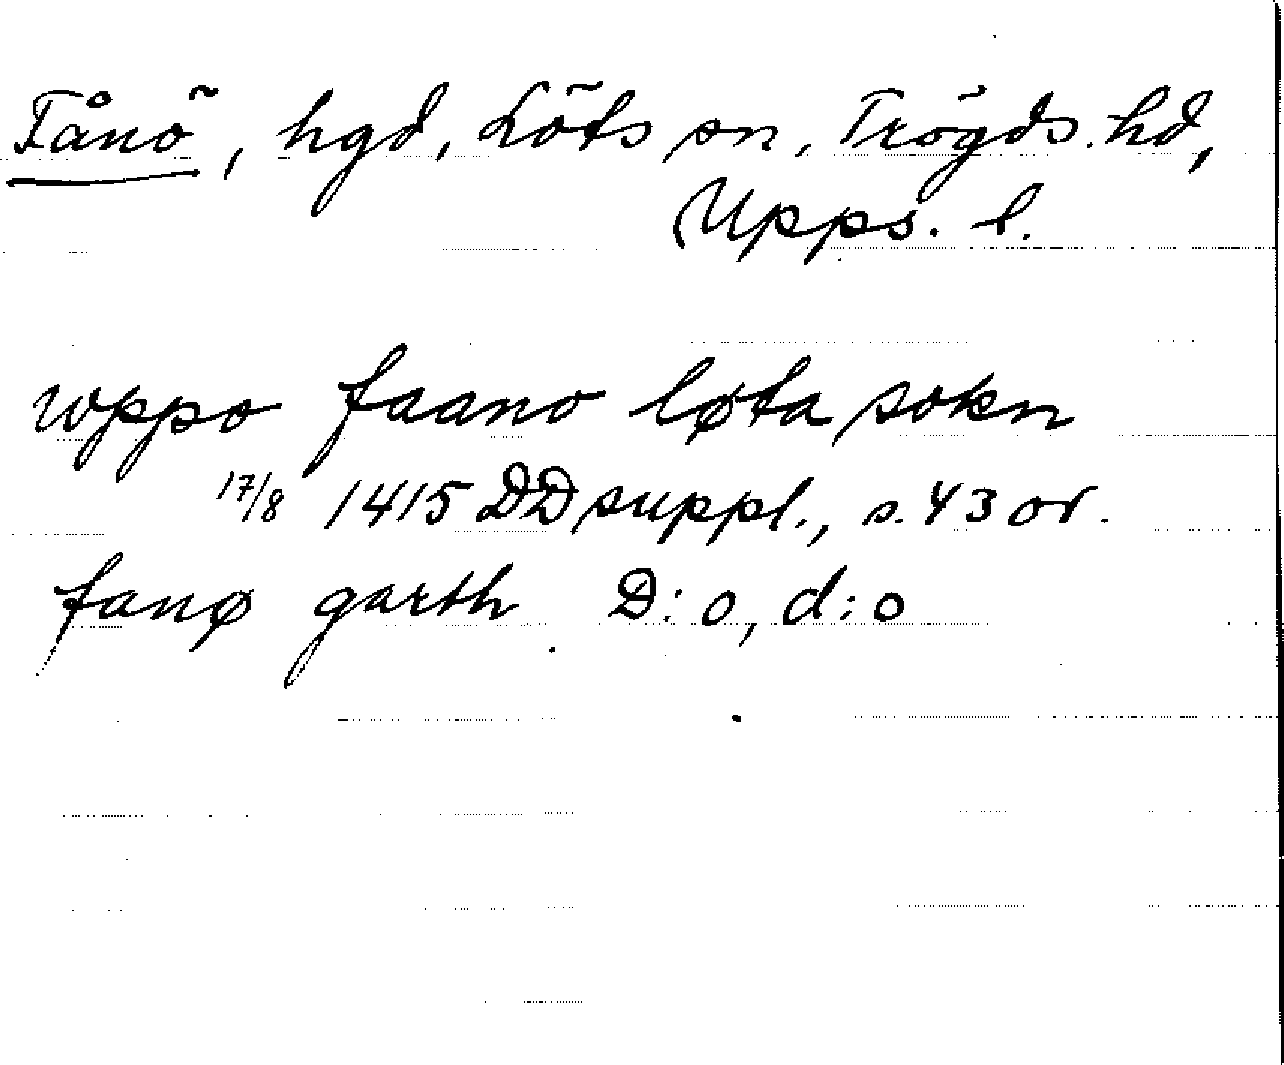 Fånö, hgd, Löts sn, Trögds hd,
Upps. l.
wppo faano løta sokn
17/8 1415 DD suppl., s. 43 or.
fanø garth D: o, d: o